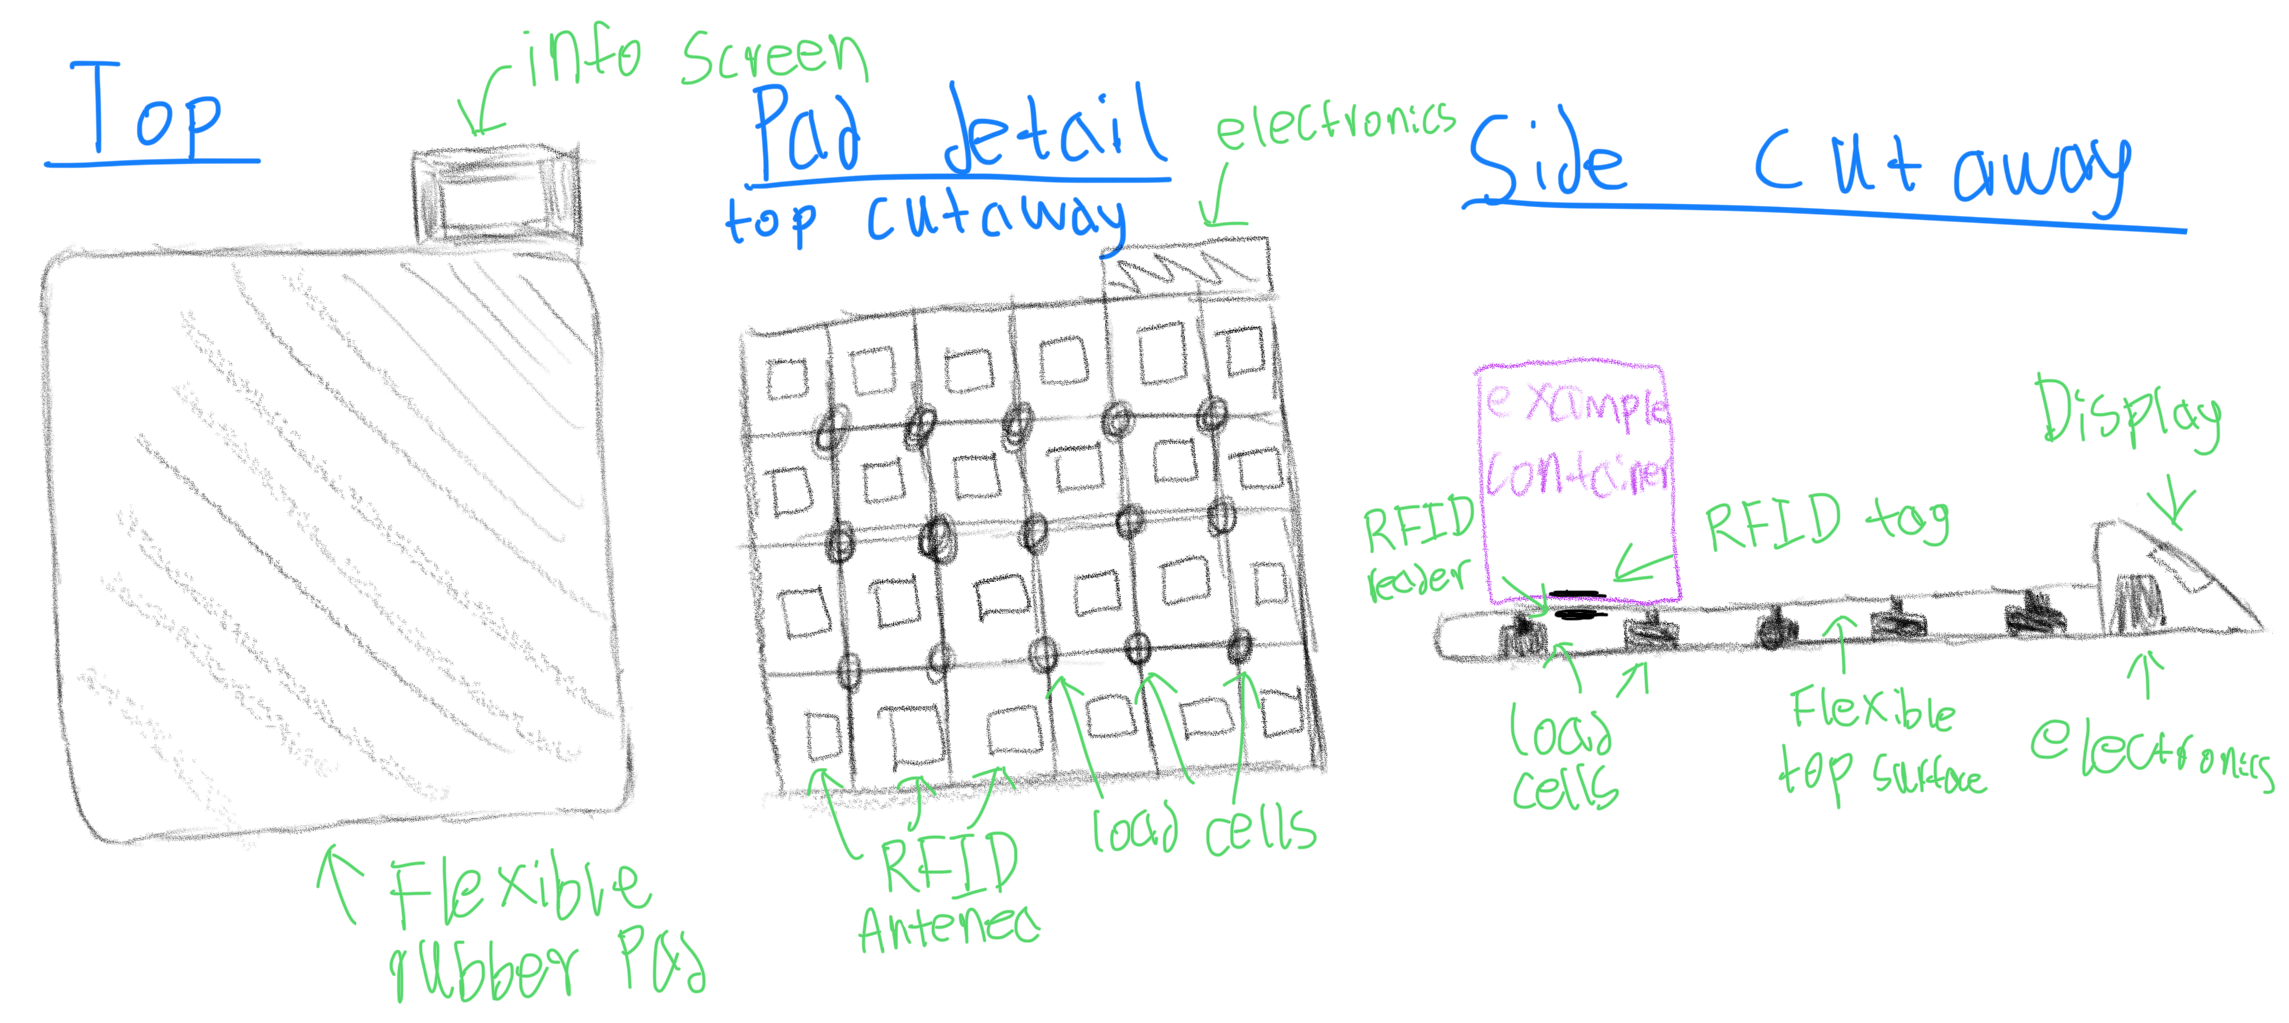 Top
info screen
Flexible
rubber Pad
Pad detail
top cutaway
electronics
RFID
Antenea
load cells
Side cutaway
example
container
RFID
reader
RFID tag
Display
load
cells
Flexible
top surface
electronics